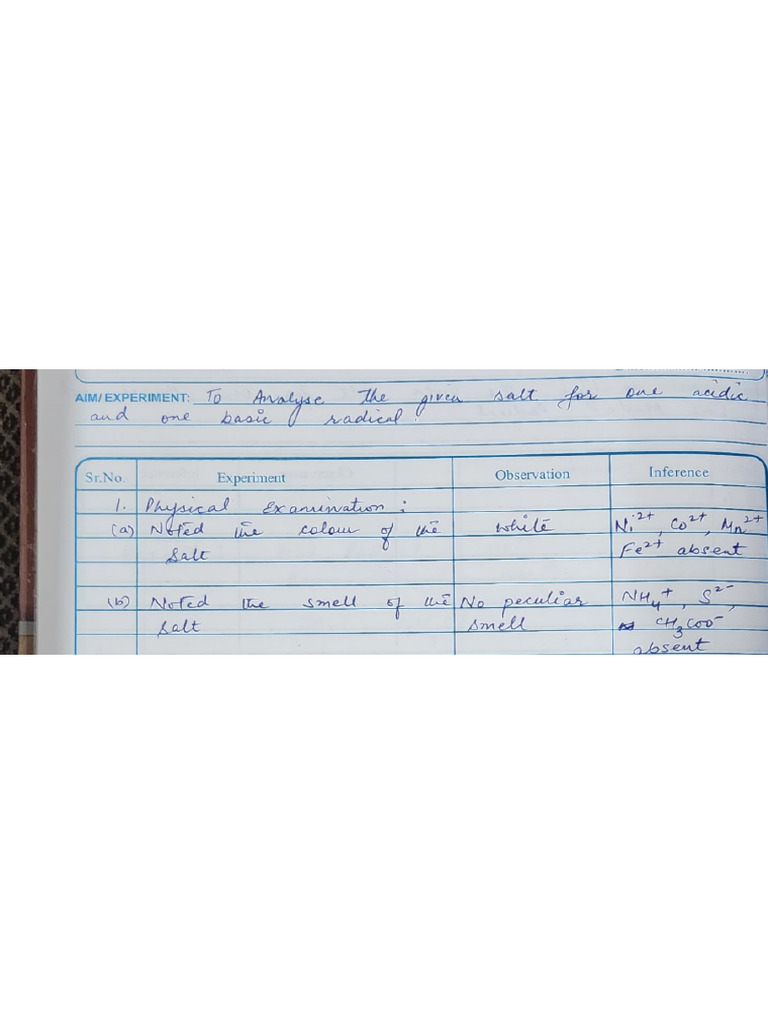 AIM/EXPERIMENT: To Analyse the given salt for one acidic
and one basic radical.
Sr.No. Experiment Observation Inference
1. Physical Examination:
(a) Noted the colour of the white Ni²⁺, Co²⁺, Mn²⁺
Salt Fe²⁺ absent
(b) Noted the smell of the No peculiar NH₄⁺, S²⁻,
Salt smell CH₃COO⁻
absent